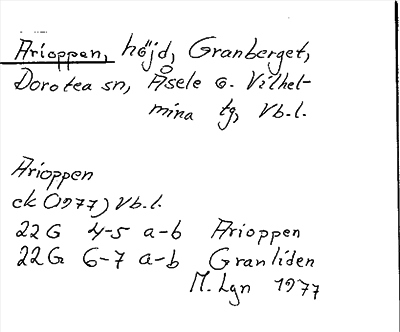 Arioppen, höjd, Granberget,
Dorotea sn, Åsele o. Vilhel-
mina tg, Vb.l.
Arioppen
ek (1977) Vb.l.
22G 4-5 a-b Arioppen
22G 6-7 a-b Granliden
M. Lgn 1977